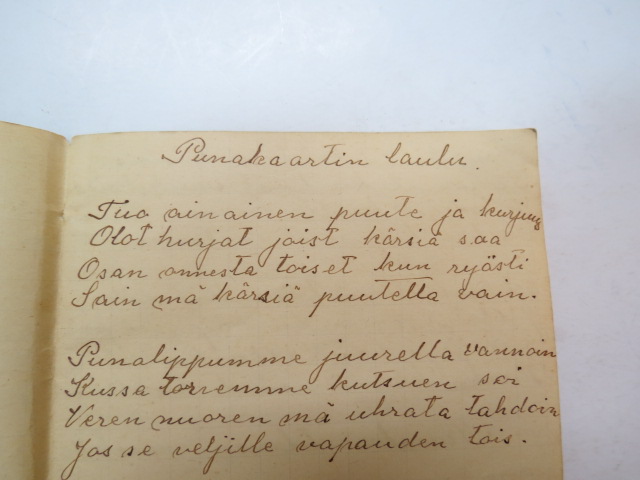 Punakaartin laulu.
Tuo ainainen puute ja kurjuus
Olot hurjat joist kärsiä saa
Osan onnesta toiset kun ryösti
Sain mä kärsiä puutella vain.
Punalippumme juurella vannoin
Kussa torvemme kutsuen soi
Veren nuoren mä uhrata tahdoin
Jos se veljille vapauden tois.